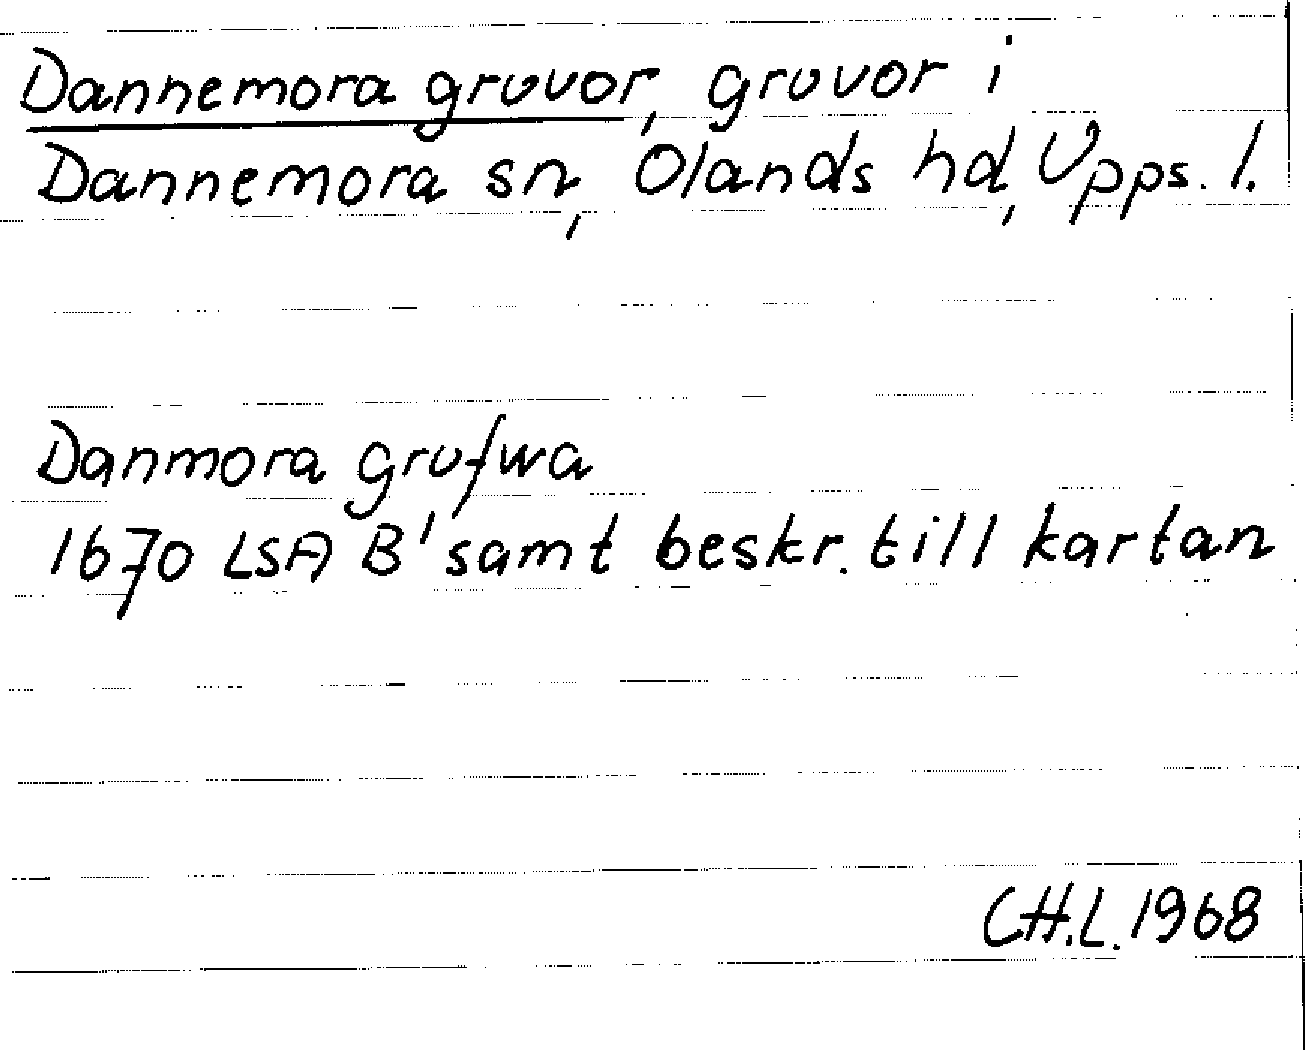 Dannemora gruvor, gruvor i
Dannemora sn, Olands hd, Upps. l.
Danmora grufwa
1670 LSA B' samt beskr. till kartan
CH.L. 1968